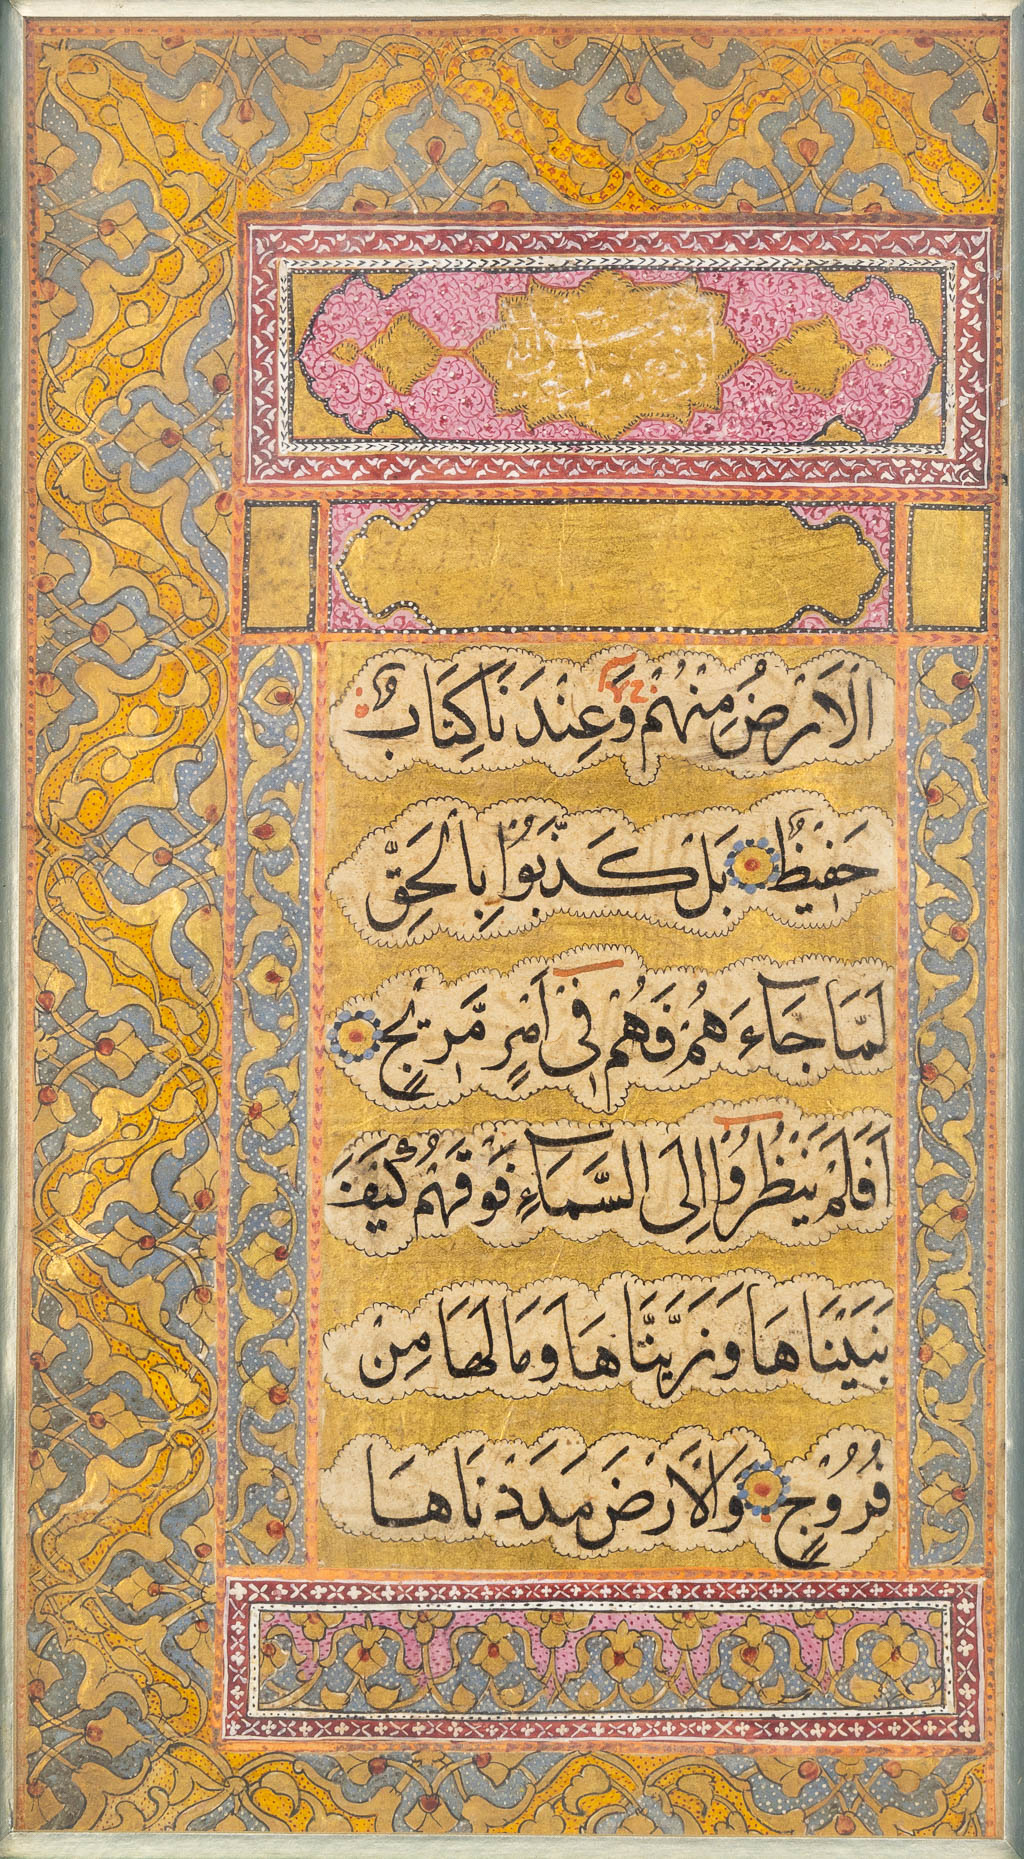 الْاَرْضُ مِنْهُمْ وَعِنْدَنَا كِتَابٌ
حَفِيْظٌ بَلْ كَذَّبُوْا بِالْحَقِّ
لَمَّا جَآءَهُمْ فَهُمْ فِيْ اَمْرٍ مَّرِيْجٍ
اَفَلَمْ يَنْظُرُوْا اِلَى السَّمَآءِ فَوْقَهُمْ كَيْفَ
بَنَيْنَاهَا وَزَيَّنَّاهَا وَمَا لَهَا مِنْ
فُرُوْجٍ وَالْاَرْضَ مَدَدْنَاهَا